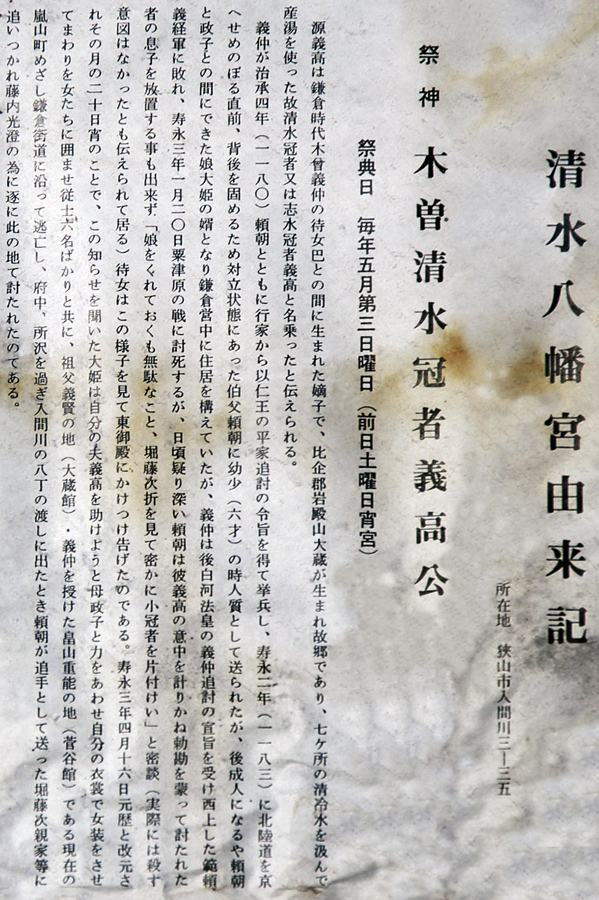 清水八幡宮由来記
所在地　狭山市入間川三―三五
祭神　木曽清水冠者義高公
祭典日　毎年五月第三日曜日（前日土曜日宵宮）
源義高は鎌倉時代木曾義仲の待女巴との間に生まれた嫡子で、比企郡岩殿山大蔵が生まれ故郷であり、七ヶ所の清冷水を汲んで
産湯を使った故清水冠者又は志水冠者義高と名乗ったと伝えられる。
義仲が治承四年（一一八〇）頼朝とともに行家から以仁王の平家追討の令旨を得て挙兵し、寿永二年（一一八三）に北陸道を京
へせめのぼる直前、背後を固めるため対立状態にあった伯父頼朝に幼少（六才）の時人質として送られたが、後成人になるや頼朝
と政子との間にできた娘大姫の婿となり鎌倉営中に住居を構えていたが、義仲は後白河法皇の義仲追討の宣旨を受け西上した範頼
義経軍に敗れ、寿永三年一月二〇日粟津原の戦に討死するが、日頃疑り深い頼朝は彼義高の意中を計りかね勅勘を蒙って討たれた
者の息子を放置する事も出来ず「娘をくれておくも無駄なこと、堀藤次折を見て密かに小冠者を片付けい」と密談（実際には殺す
意図はなかったとも伝えられて居る）待女はこの様子を見て東御殿にかけつけ告げたのである。寿永三年四月十六日元歴と改元さ
れその月の二十日宵のことで、この知らせを聞いた大姫は自分の夫義高を助けようと母政子と力をあわせ自分の衣裳で女装をさせ
てまわりを女たちに囲ませ従士六名ばかりと共に、祖父義賢の地（大蔵館）・義仲を授けた畠山重能の地（菅谷館）である現在の
嵐山町めざし鎌倉街道に沿って逃亡し、府中、所沢を過ぎ入間川の八丁の渡しに出たとき頼朝が追手として送った堀藤次親家等に
追いつかれ藤内光澄の為に逐に此の地て討たれたのである。